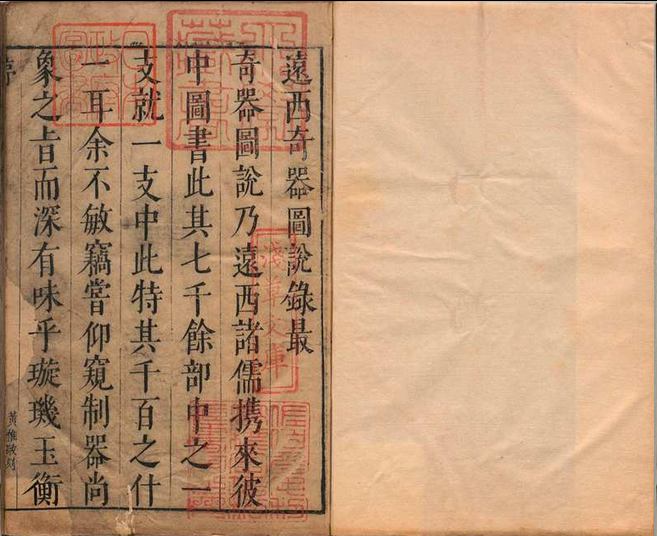 遠西奇器圖說錄最
奇器圖說乃遠西諸儒携來彼
中圖書此其七千餘部中之一
支就一支中此特其千百之什
一耳余不敏竊嘗仰窺制器尚
象之旨而深有味乎璇璣玉衡
淺草文庫